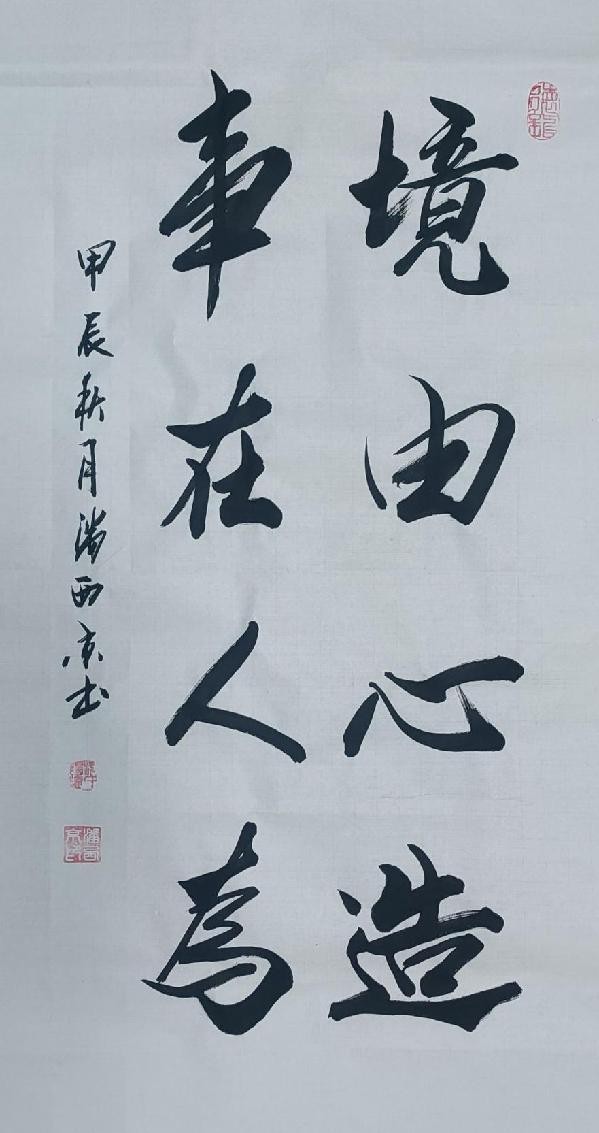 境由心造
事在人为
甲辰秋月潘西京书